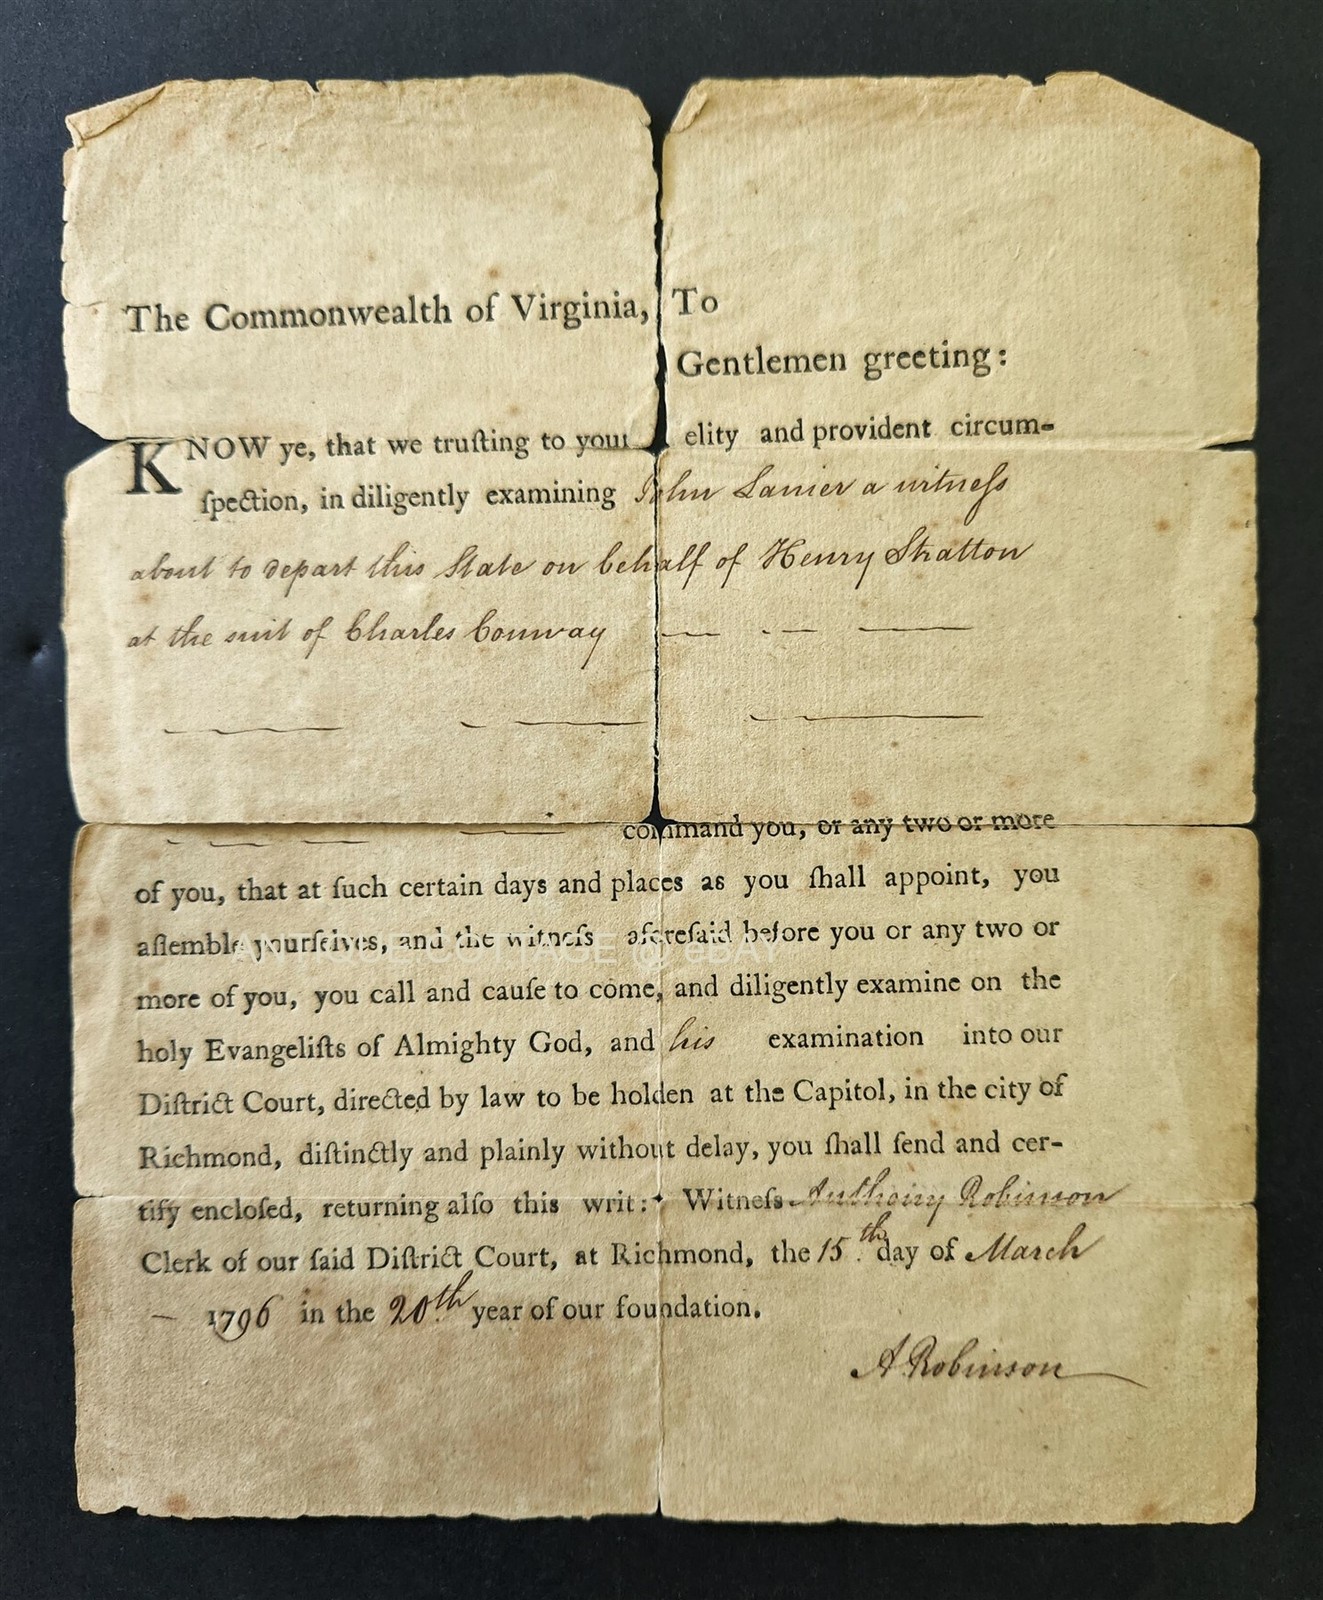 The Commonwealth of Virginia, To
Gentlemen greeting:
KNOW ye, that we truſting to your elity and provident circum-
ſpection, in diligently examining John Lanier a witneſs
about to depart this State on behalf of Henry Stratton
at the suit of Charles Conway
command you, or any two or more
of you, that at ſuch certain days and places as you ſhall appoint, you
aſſemble yourſelves, and the witneſs aforeſaid before you or any two or
more of you, you call and cauſe to come, and diligently examine on the
holy Evangeliſts of Almighty God, and his examination into our
Diſtrict Court, directed by law to be holden at the Capitol, in the city of
Richmond, diſtinctly and plainly without delay, you ſhall ſend and cer-
tify encloſed, returning alſo this writ: Witneſs Anthony Robinson
Clerk of our ſaid Diſtrict Court, at Richmond, the 15.th day of March
1796 in the 20th year of our foundation.
A Robinson